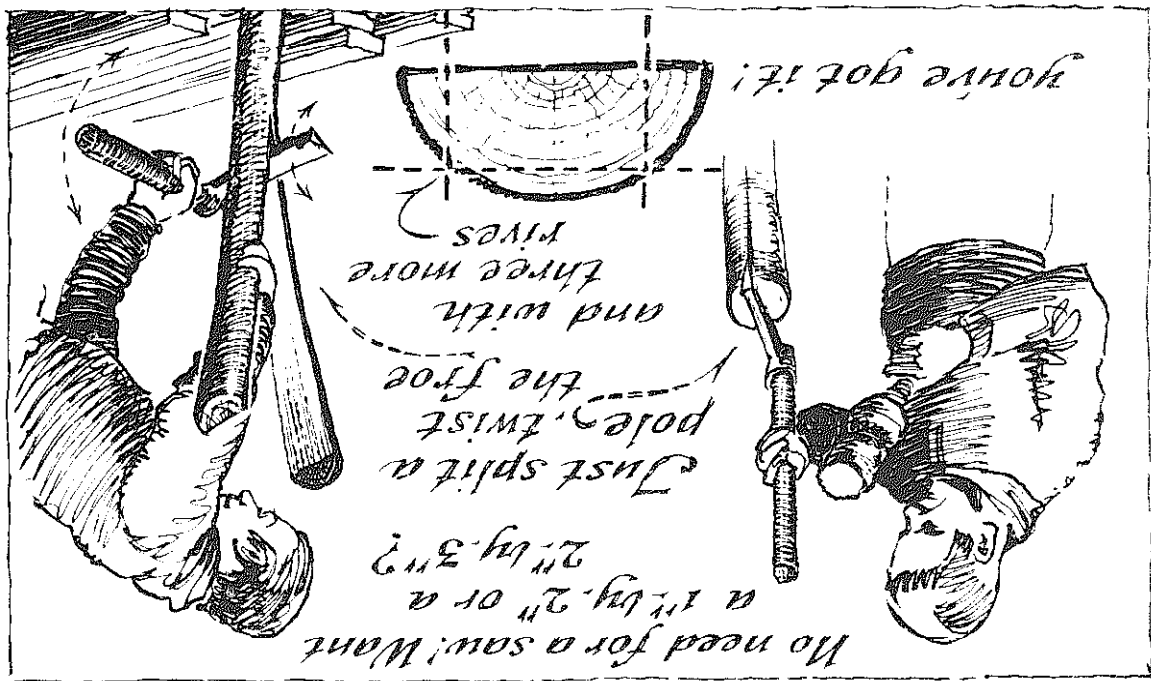 No need for a saw! Want
a 1" by 2" or a
2" by 3"?
Just split a
pole, twist
the froe
and with
three more
rives
you've got it!